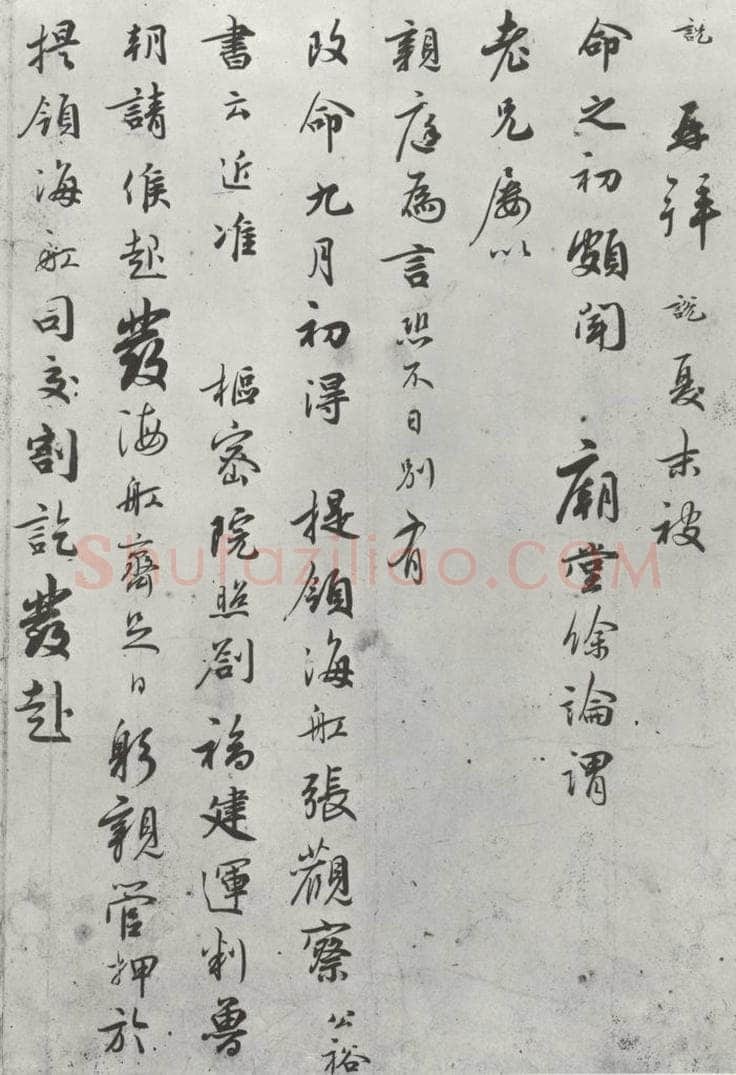 說再拜說夏末被
命之初頗聞廟堂餘論謂
老兄屢以
親庭為言恐不日別有
改命九月初得提領海舡張觀察公裕
書云近准樞密院照劄福建運判魯
朝請候起發海舡齊足日躬親管押於
提領海舡司交割訖發赴
Shufaziliao.COM